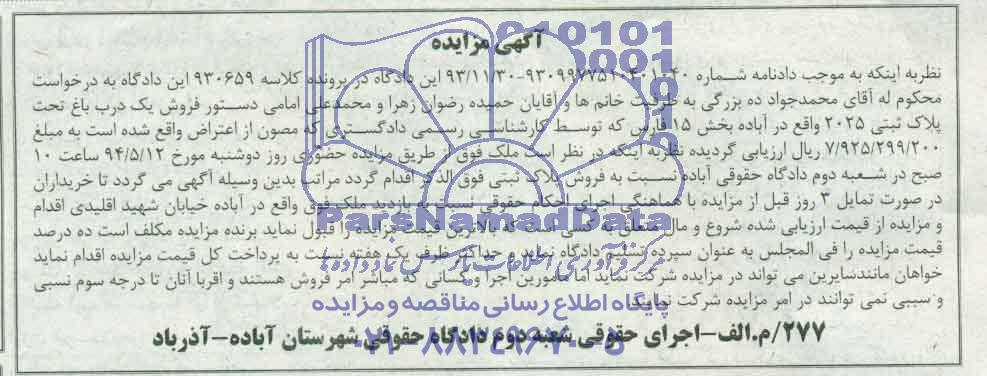 آگهی مزایده
نظربه اینکه به موجب دادنامه شماره ۹۳۰۹۹۷۷۵۱۰۴۰۱۰۴۰-۹۳/۱۱/۳۰ این دادگاه در پرونده کلاسه ۹۳۰۶۵۹ این دادگاه به درخواست
محکوم له آقای محمدجواد ده بزرگی به طرفیت خانم ها و آقایان حمیده رضوان زهرا و محمدعلی امامی دستور فروش یک درب باغ تحت
پلاک ثبتی ۲۰۲۵ واقع در آباده بخش ۱۵ فارس که توسط کارشناسی رسمی دادگستری که مصون از اعتراض واقع شده است به مبلغ
۷/۹۲۵/۲۹۹/۲۰۰ ریال ارزیابی گردیده نظربه اینکه در نظر است ملک فوق از طریق مزایده حضوری روز دوشنبه مورخ ۹۴/۵/۱۲ ساعت ۱۰
صبح در شعبه دوم دادگاه حقوقی آباده نسبت به فروش پلاک ثبتی فوق الذکر اقدام گردد مراتب بدین وسیله آگهی می گردد تا خریداران
در صورت تمایل ۳ روز قبل از مزایده با هماهنگی اجرای احکام حقوقی نسبت به بازدید ملک فوق واقع در آباده خیابان شهید اقلیدی اقدام
و مزایده از قیمت ارزیابی شده شروع و مال متعلق به کسی است که بالاترین قیمت مزایده را قبول نماید برنده مزایده مکلف است ده درصد
قیمت مزایده را فی المجلس به عنوان سپرده تسلیم دادگاه نماید و حداکثر ظرف یک هفته نسبت به پرداخت کل قیمت مزایده اقدام نماید
خواهان مانندسایرین می تواند در مزایده شرکت نماید اما مامورین اجرا و کسانی که مباشر امر فروش هستند و اقربا آنان تا درجه سوم نسبی
و سببی نمی توانند در امر مزایده شرکت نمایند.
۲۷۷/م.الف-اجرای حقوقی شعبه دوم دادگاه حقوقی شهرستان آباده-آذرباد
ParsNamadData
پایگاه اطلاع رسانی مناقصه و مزایده